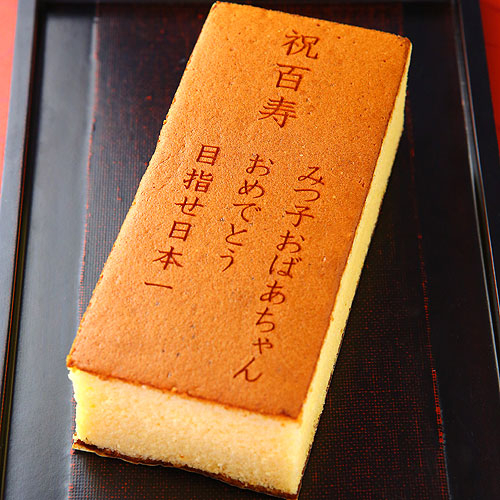 祝百寿
みつ子おばあちゃん
おめでとう
目指せ日本一